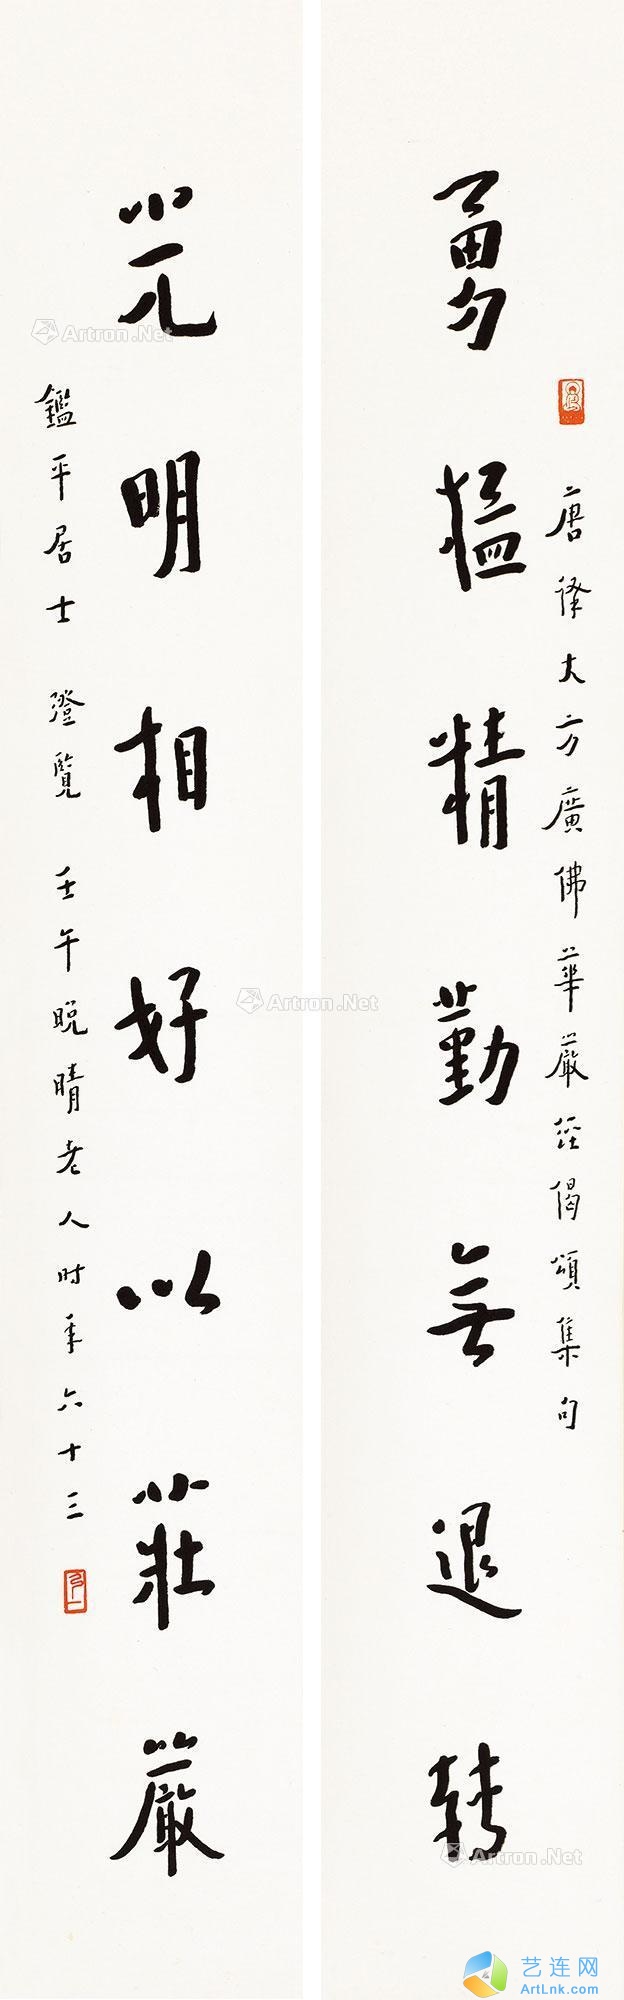 唐译大方廣佛華嚴經偈頌集句
勇猛精勤無退转
光明相好以莊嚴
鑑平居士 澄覽 壬午晚晴老人时年六十三
Artron.Net
Artron.Net
Artron.Net
艺连网
ArtLnk.com